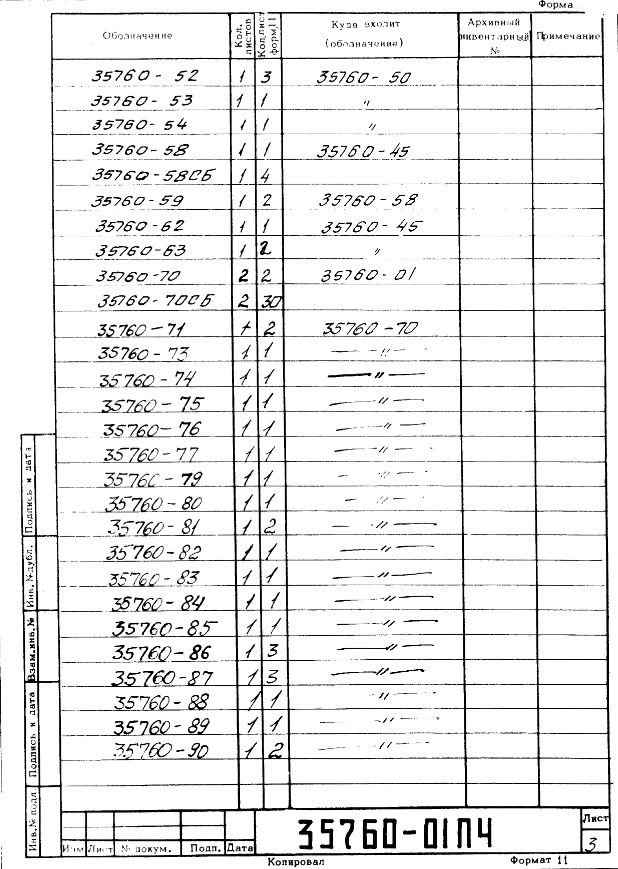 Форма
Обозначение Кол. листов Кол.лист форм.11 Куда входит (обозначение) Архивный инвентарный № Примечание
35760-52 1 3 35760-50
35760-53 1 1 "
35760-54 1 1 "
35760-58 1 1 35760-45
35760-58СБ 1 4
35760-59 1 2 35760-58
35760-62 1 1 35760-45
35760-63 1 2 "
35760-70 2 2 35760-01
35760-70СБ 2 30
35760-71 1 2 35760-70
35760-73 1 1 — " —
35760-74 1 1 — " —
35760-75 1 1 — " —
35760-76 1 1 — " —
35760-77 1 1 — " —
35760-79 1 1 — " —
35760-80 1 1 — " —
35760-81 1 2 — " —
35760-82 1 1 — " —
35760-83 1 1 — " —
35760-84 1 1 — " —
35760-85 1 1 — " —
35760-86 1 3 — " —
35760-87 1 3 — " —
35760-88 1 1 — " —
35760-89 1 1 — " —
35760-90 1 2 — " —
Подпись и дата
Инв. № дубл.
Взам.инв.№
Подпись и дата
Инв.№ подл.
Изм Лист № докум. Подп. Дата
35760-01П4
Лист
3
Копировал Формат 11